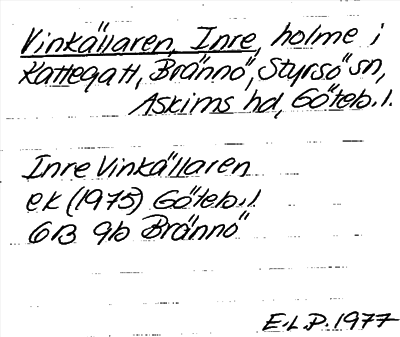 Vinkällaren, Inre, holme i
Kattegatt, Brännö, Styrsö sn,
Askims hd, Göteb. l.
Inre Vinkällaren
ek (1975) Göteb. l.
6B 9b Brännö
E.L.P. 1977